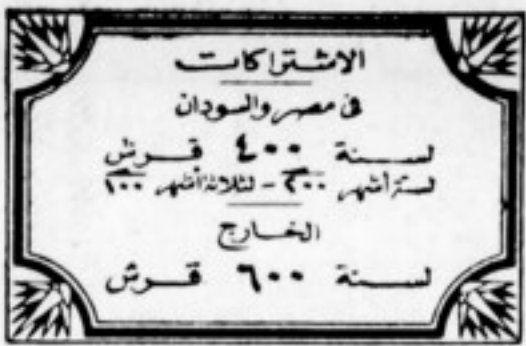 الاشتراكات
في مصر والسودان
لسنة ٤٠٠ قرش
لستة أشهر ٢٠٠ - لثلاثة أشهر ١٠٠
الخارج
لسنة ٦٠٠ قرش